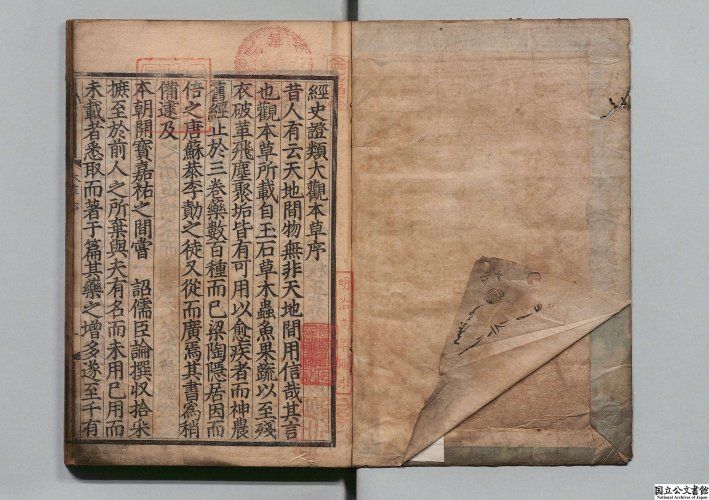 經史證類大觀本草序
昔人有云天地間物無非天地間用信哉其言
也觀本草所載自玉石草木蟲魚果蔬以至殘
衣破革飛塵聚垢皆有可用以愈疾者而神農
舊經止於三卷藥數百種而已梁陶隱居因而
倍之唐蘇恭李勣之徒又從而廣焉其書爲稍
備逮及
本朝開寶嘉祐之間嘗 詔儒臣論撰収拾采
摭至於前人之所棄與夫有名而未用已用而
未載者悉取而著于篇其藥之增多遂至千有
国立公文書館
National Archives of Japan